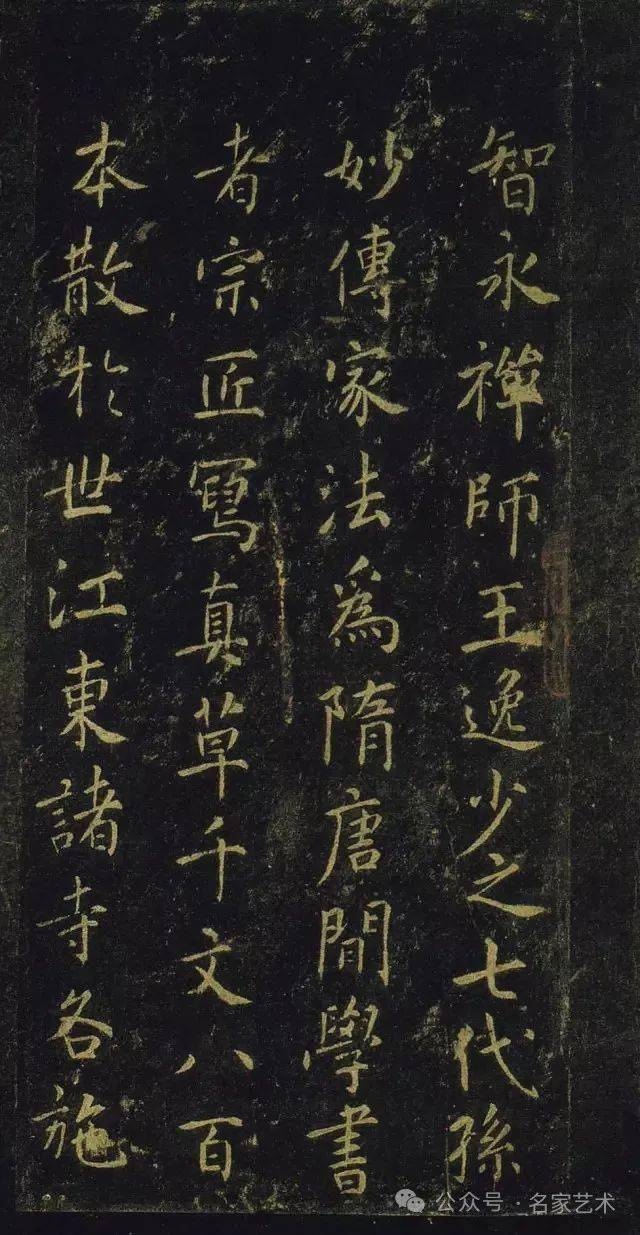 智永禅師王逸少之七代孫
妙傳家法爲隋唐間學書
者宗匠寫真草千文八百
本散於世江東諸寺各施
公众号·名家艺术